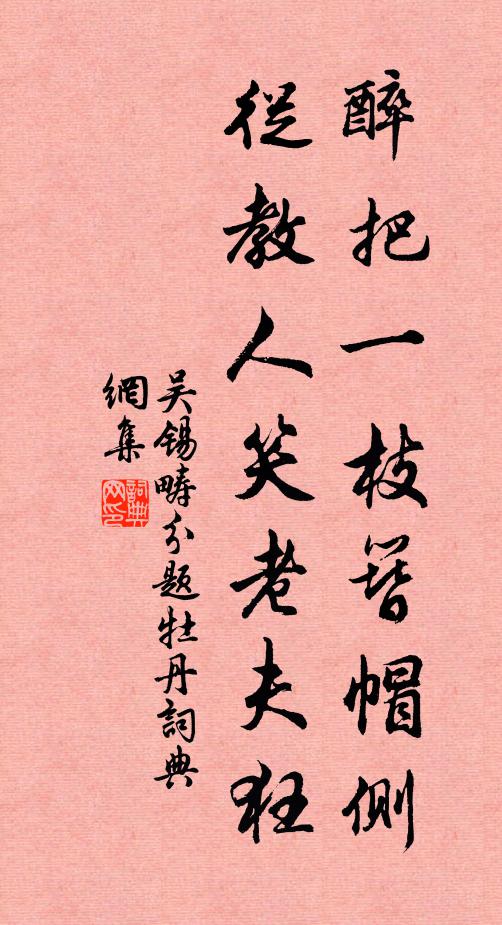 醉把一枝簪帽側
從教人笑老夫狂
吴錫疇分題牡丹詞典
網集
詞典網印